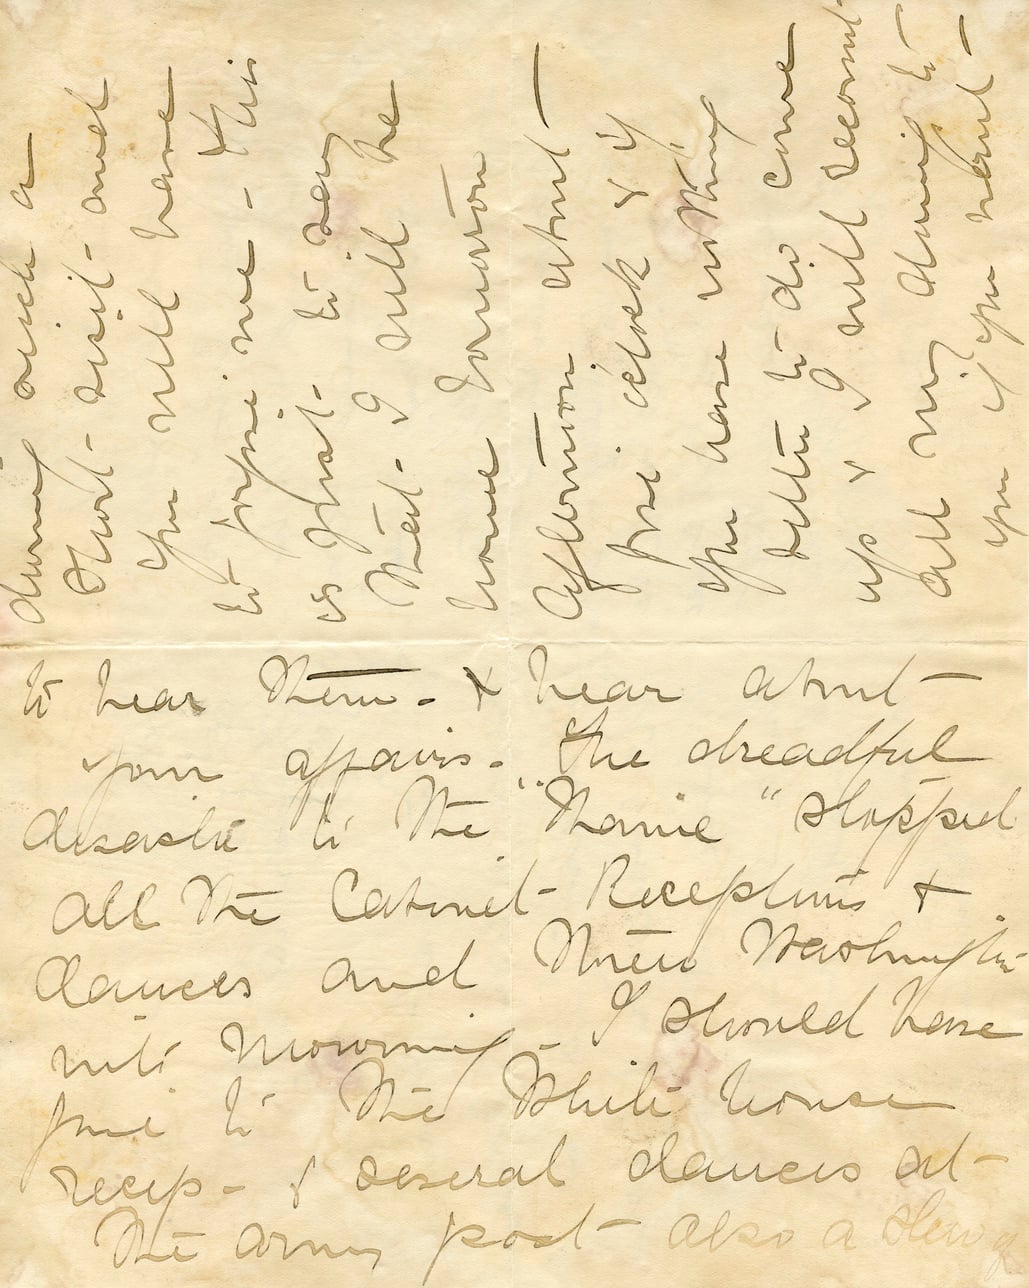 during such a
short visit and
you will have
to forgive me - this
is just to say
that I will be
home tomorrow
afternoon about
five o'clock & if
you have nothing
better to do come
up & I will recount
all my doings to
you if you want
to hear them - & hear about
your affairs. The dreadful
disaster to the "Maine" stopped
all the Cabinet Receptions &
dances and threw Washington
into mourning - I should have
gone to the White house
recep - & several dances at
the army post also a slew of